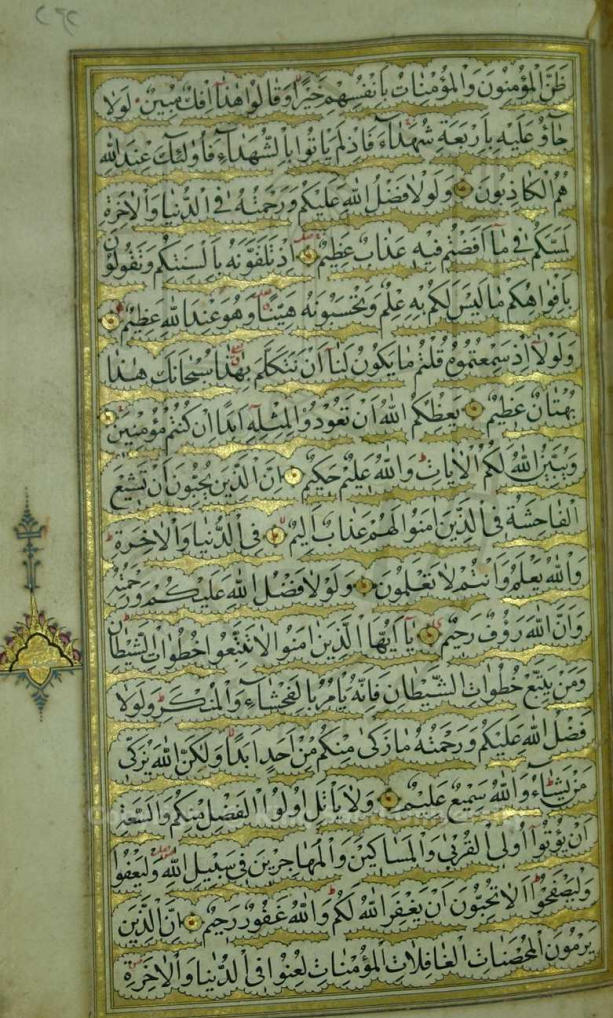 ظَنَّ الْمُؤْمِنُونَ وَالْمُؤْمِنَاتُ بِاَنْفُسِهِمْ خَيْرًا وَقَالُوا هٰذَا اِفْكٌ مُبِينٌ لَوْلَا
جَاؤُ عَلَيْهِ بِاَرْبَعَةِ شُهَدَاءَ فَاِذْ لَمْ يَاْتُوا بِالشُّهَدَاءِ فَاُولٰئِكَ عِنْدَ اللهِ
هُمُ الْكَاذِبُونَ وَلَوْلَا فَضْلُ اللهِ عَلَيْكُمْ وَرَحْمَتُهُ فِي الدُّنْيَا وَالْاٰخِرَةِ
لَمَسَّكُمْ فِي مَا اَفَضْتُمْ فِيهِ عَذَابٌ عَظِيمٌ اِذْ تَلَقَّوْنَهُ بِاَلْسِنَتِكُمْ وَتَقُولُونَ
بِاَفْوَاهِكُمْ مَا لَيْسَ لَكُمْ بِهِ عِلْمٌ وَتَحْسَبُونَهُ هَيِّنًا وَهُوَ عِنْدَ اللهِ عَظِيمٌ
وَلَوْلَا اِذْ سَمِعْتُمُوهُ قُلْتُمْ مَا يَكُونُ لَنَا اَنْ نَتَكَلَّمَ بِهٰذَا سُبْحَانَكَ هٰذَا
بُهْتَانٌ عَظِيمٌ يَعِظُكُمُ اللهُ اَنْ تَعُودُوا لِمِثْلِهِ اَبَدًا اِنْ كُنْتُمْ مُؤْمِنِينَ
وَيُبَيِّنُ اللهُ لَكُمُ الْاٰيَاتِ وَاللهُ عَلِيمٌ حَكِيمٌ اِنَّ الَّذِينَ يُحِبُّونَ اَنْ تَشِيعَ
الْفَاحِشَةُ فِي الَّذِينَ اٰمَنُوا لَهُمْ عَذَابٌ اَلِيمٌ فِي الدُّنْيَا وَالْاٰخِرَةِ
وَاللهُ يَعْلَمُ وَاَنْتُمْ لَا تَعْلَمُونَ وَلَوْلَا فَضْلُ اللهِ عَلَيْكُمْ وَرَحْمَتُهُ
وَاَنَّ اللهَ رَؤُفٌ رَحِيمٌ يَا اَيُّهَا الَّذِينَ اٰمَنُوا لَا تَتَّبِعُوا خُطُوَاتِ الشَّيْطَانِ
وَمَنْ يَتَّبِعْ خُطُوَاتِ الشَّيْطَانِ فَاِنَّهُ يَاْمُرُ بِالْفَحْشَاءِ وَالْمُنْكَرِ وَلَوْلَا
فَضْلُ اللهِ عَلَيْكُمْ وَرَحْمَتُهُ مَا زَكٰى مِنْكُمْ مِنْ اَحَدٍ اَبَدًا وَلٰكِنَّ اللهَ يُزَكِّي
مَنْ يَشَاءُ وَاللهُ سَمِيعٌ عَلِيمٌ وَلَا يَاْتَلِ اُولُوا الْفَضْلِ مِنْكُمْ وَالسَّعَةِ
اَنْ يُؤْتُوا اُولِي الْقُرْبٰى وَالْمَسَاكِينَ وَالْمُهَاجِرِينَ فِي سَبِيلِ اللهِ وَلْيَعْفُوا
وَلْيَصْفَحُوا اَلَا تُحِبُّونَ اَنْ يَغْفِرَ اللهُ لَكُمْ وَاللهُ غَفُورٌ رَحِيمٌ اِنَّ الَّذِينَ
يَرْمُونَ الْمُحْصَنَاتِ الْغَافِلَاتِ الْمُؤْمِنَاتِ لُعِنُوا فِي الدُّنْيَا وَالْاٰخِرَةِ